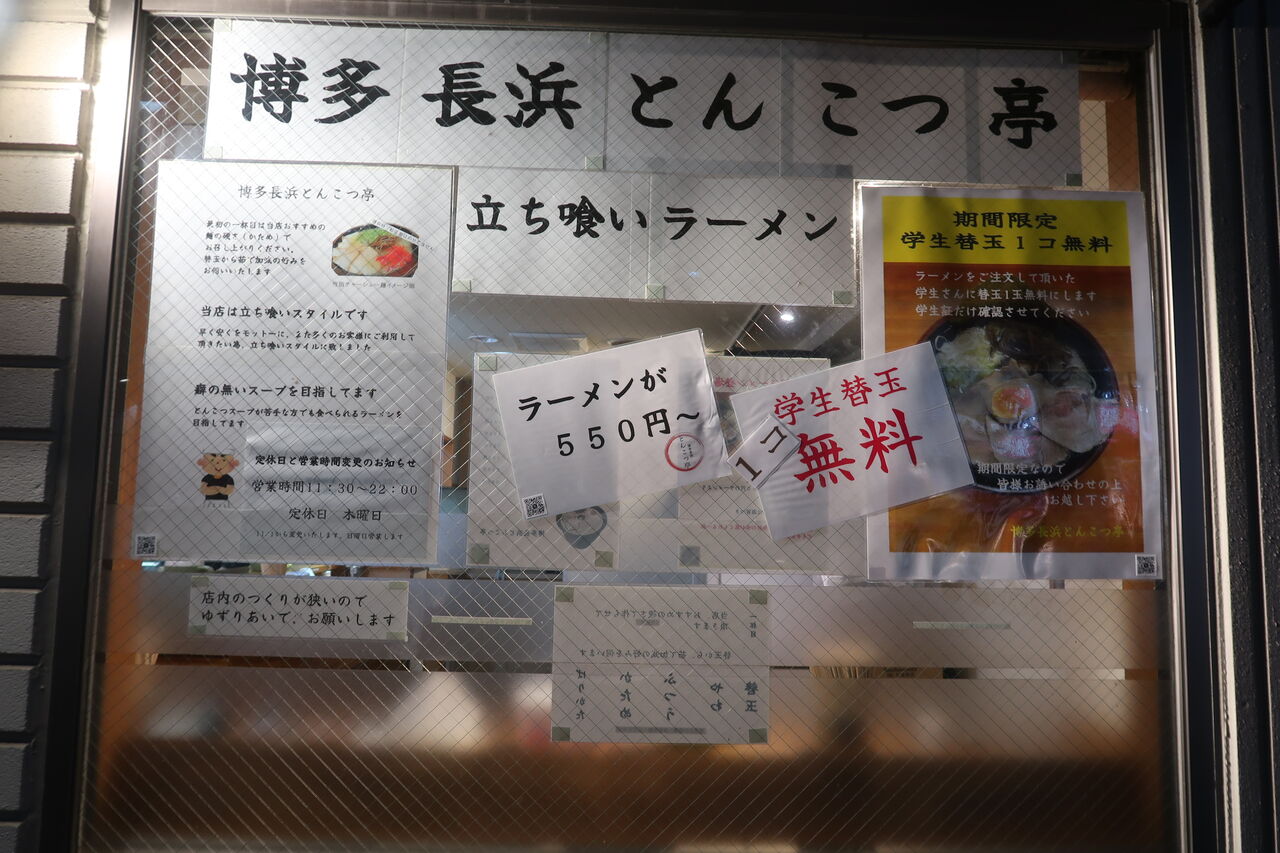 博多長浜とんこつ亭
立ち喰いラーメン
博多長浜とんこつ亭
最初の一杯目は当店おすすめの
麺の硬さ(かため)で
お召し上がりください。
替玉から茹で加減の好みを
お伺いいたします
当店は立ち喰いスタイルです
早く安くをモットーに、またろくのお客様にご利用して
頂きたい為、立ち喰いスタイルに致しました
癖の無いスープを目指してます
とんこつスープが苦手な方でも食べられるラーメンを
目指してます
定休日と営業時間変更のお知らせ
営業時間11:30~22:00
定休日 木曜日
11/1から変更いたします。日曜日営業します
ラーメンが
550円~
とんこつ亭
学生替玉
1コ
無料
期間限定
学生替玉1コ無料
ラーメンをご注文して頂いた
学生さんに替玉1玉無料にします
学生証だけ確認させてください
期間限定なので
皆様お誘い合わせの上
お越し下さい
博多長浜とんこつ亭
店内のつくりが狭いので
ゆずりあいで、お願いします
替玉
やわ
ふつう
かため
ばりかた